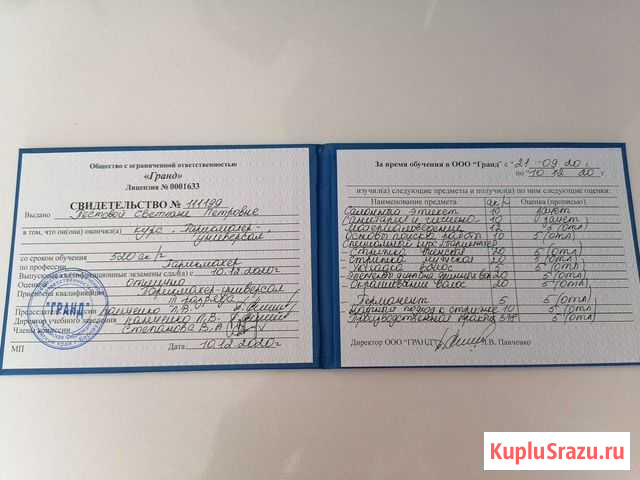 Общество с ограниченной ответственностью
«Гранд»
Лицензия № 0001633
СВИДЕТЕЛЬСТВО № 111199
Выдано Пестовой Светлане Петровне
в том, что он(она) окончил(а) курс "Парикмахер-
универсал
со сроком обучения 520 ак/ч
по профессии Парикмахер
Выпускные квалификационные экзамены сдал(а) с 10.12.2020г
Оценка Отлично
Присвоена квалификация Парикмахер-универсал
III разряда
Председатель Панченко Л.В.
Директор учебного заведения Панченко Л.В.
Члены комиссии Степанова В.А
МП Дата 10.12.2020г
"ГРАНД"
За время обучения в ООО "Гранд" с "21-09 20г.
по 10 12 20г
изучил(а) следующие предметы и получил(а) по ним следующие оценки:
Наименование предмета ак/ч Оценка (прописью)
Салонный этикет 10 зачет
Санитария и гигиена 10 зачет
Материаловедение 12 5 (отл)
Основы поиска работы 10 5 (отл)
Специальный курс Парикмахер
- Стрижка женская 20 5 (отл)
- Стрижка мужская 20 5 (отл)
- Укладка волос 5 5 (отл)
20 5 (отл)
- Окрашивание волос 20 5 (отл)
Перманент 5 5 (отл)
к стрижке 10 5 (отл)
Производственная практика 5 (отл)
Директор ООО "ГРАНД" Л.В. Панченко
KupluSrazu.ru